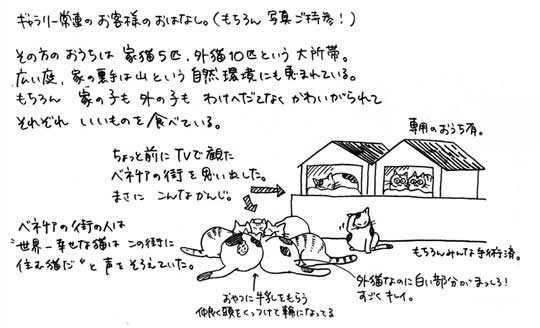 ギャラリー常連の お客様の おはなし。(もちろん 写真ご持参！)
その方の おうちは 家猫5匹、外猫10匹という 大所帯。
広い庭、家の裏手は山という 自然環境にも 恵まれている。
もちろん 家の子も 外の子も わけへだてなく かわいがられて
それぞれ いいものを 食べている。
専用のおうち有。
ちょっと前に TVで観た
ベネチアの街を 思い出した。
まさに こんなかんじ。
ベネチアの街の人は
"世界一幸せな猫は この街に
住む猫だ"と 声をそろえていた。
もちろんみんな手術済。
外猫なのに白い部分がまっしろ！
すごくキレイ。
おやつに牛乳をもらう
仲良く頭をくっつけて輪になってる